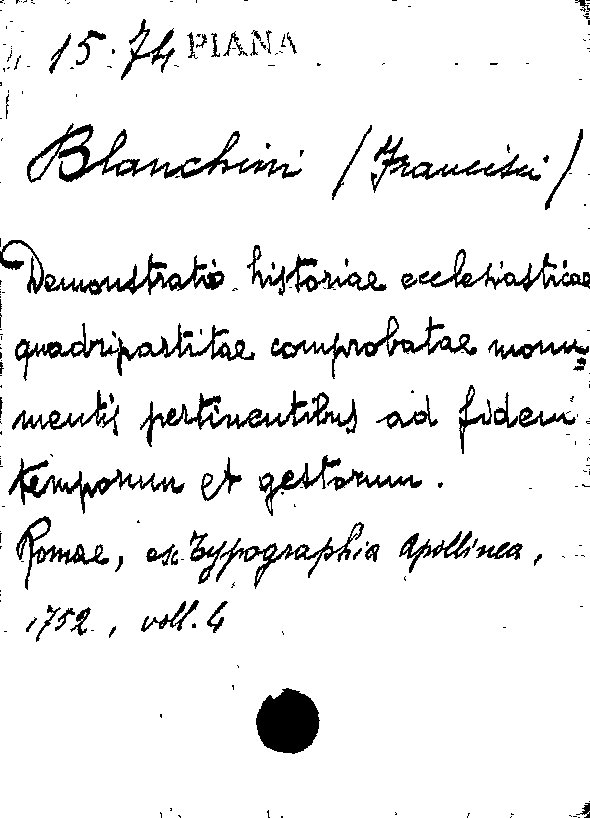 15.74 PIANA
Blanchini (Francisci)
Demonstratio historiae ecclesiasticae
quadripartitae comprobatae monu=
mentis pertinentibus ad fidem
temporum et gestorum.
Romae, ex Typographia Apollinea,
1752, voll. 4